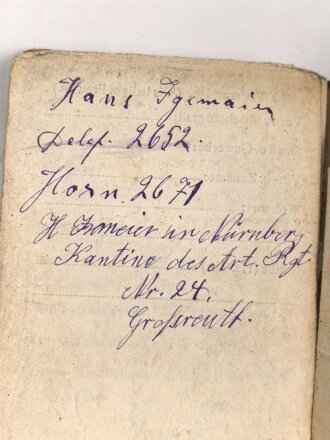 Hans Igemaier
Telef. 2652.
Horn. 2671
H. in Nürnberg
Kantine des Art. Rgt.
Nr. 24.
Großreuth.